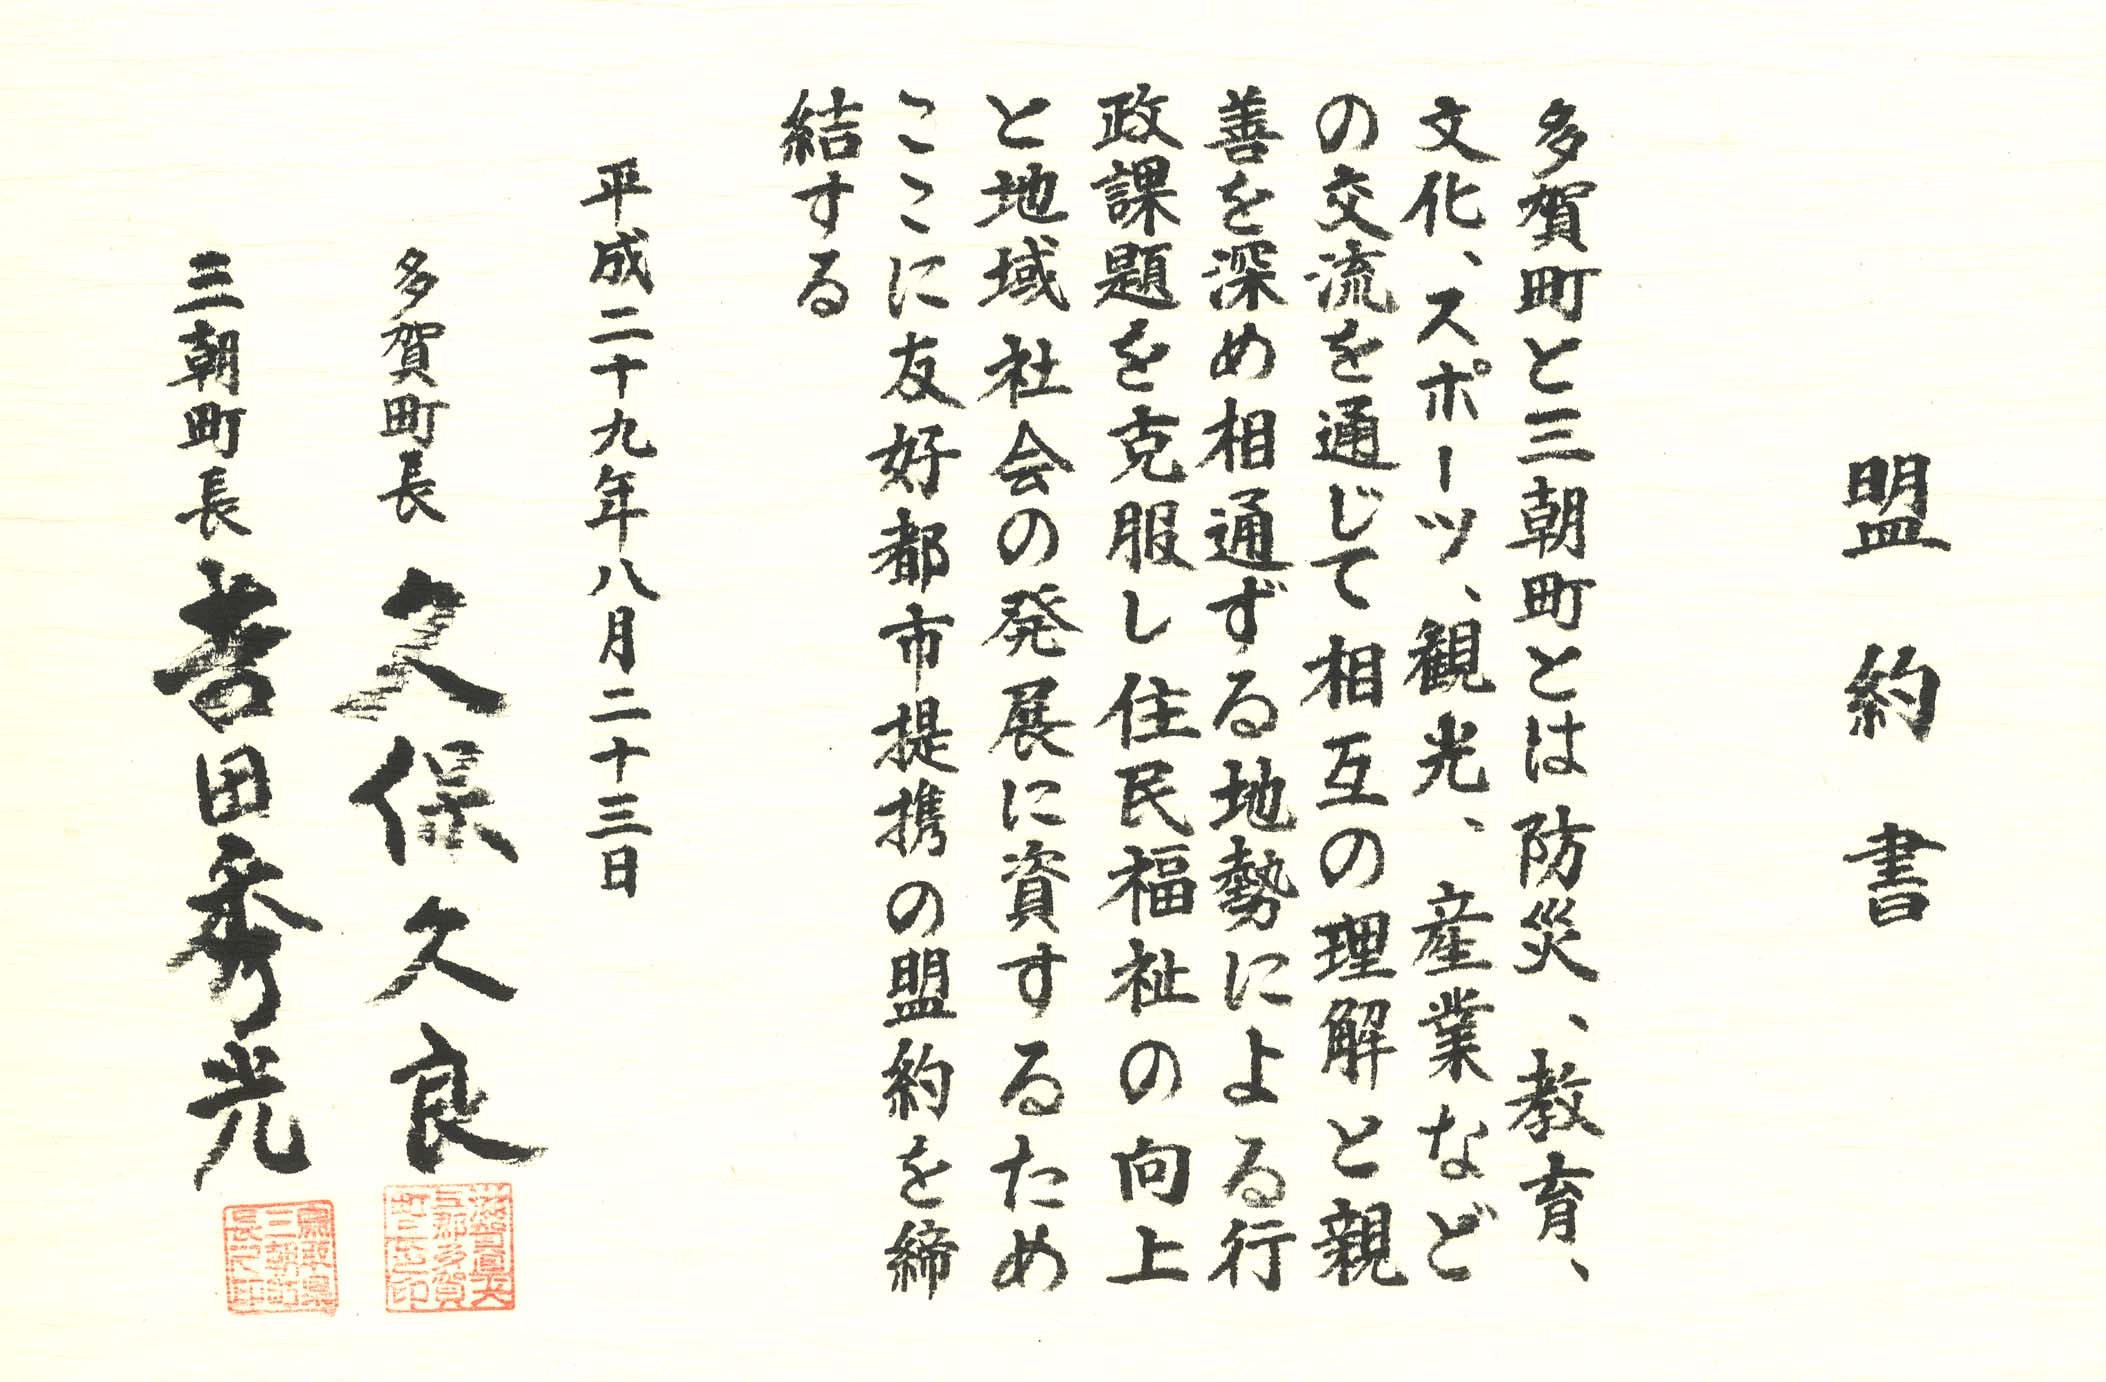 盟約書
多賀町と三朝町とは防災、教育、
文化、スポーツ、観光、産業など
の交流を通じて相互の理解と親
善を深め相通ずる地勢による行
政課題を克服し住民福祉の向上
と地域社会の発展に資するため
ここに友好都市提携の盟約を締
結する
平成二十九年八月二十三日
多賀町長 久保久良
滋賀県犬
上郡多賀
町長之印
三朝町長 吉田秀光
鳥取県
三朝町
長之印